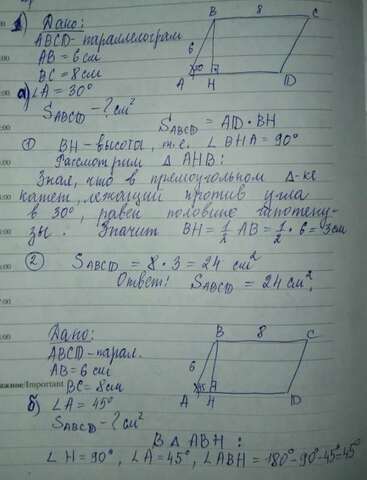 1) Дано:
ABCD - параллелограм
AB = 6 см
BC = 8 см
а) ∠A = 30°
S ABCD - ? см²
B 8 C
6
30°
A H D
S ABCD = AD · BH
① BH - высота, т.е. ∠BHA = 90°
Рассмотрим Δ AHB:
Зная, что в прямоугольном Δ-ке
катет, лежащий против угла
в 30°, равен половине гипотену-
зы. Значит BH = 1/2 AB = 1/2 · 6 = 3см
② S ABCD = 8 · 3 = 24 см²
Ответ: S ABCD = 24 см².
Дано:
ABCD - парал.
AB = 6 см
BC = 8 см
б) ∠A = 45°
S ABCD - ? см²
B 8 C
6
45
A H D
В Δ ABH:
∠H = 90°, ∠A = 45°, ∠ABH = 180° - 90° - 45° = 45°
ажное/Important